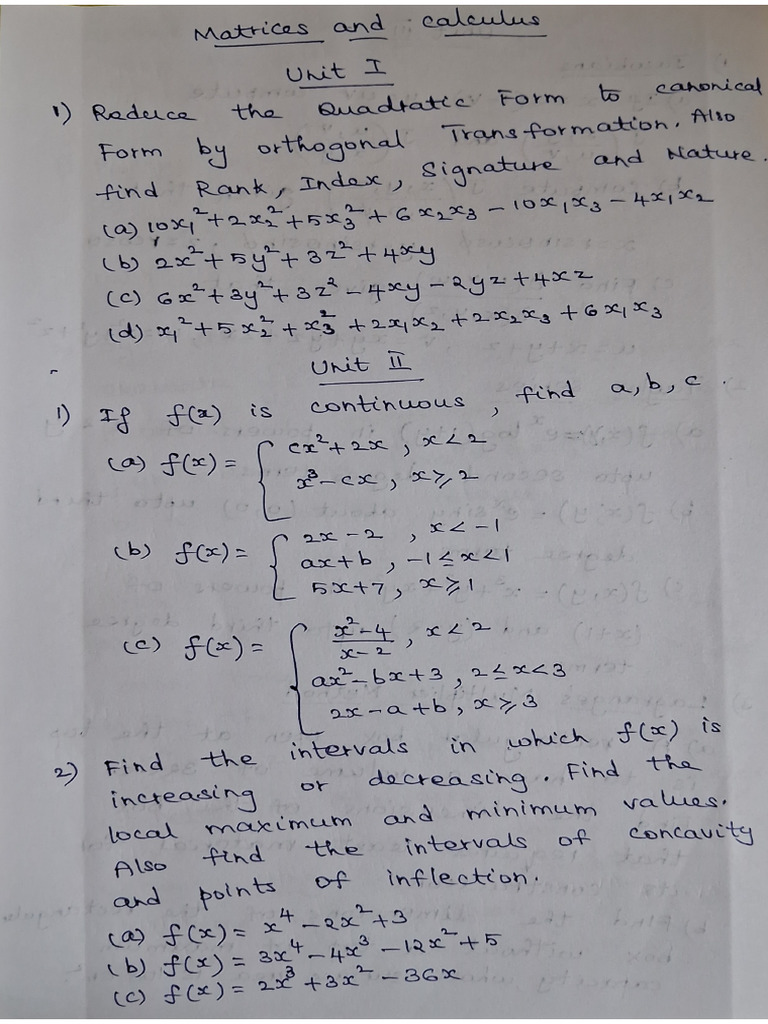 Matrices and calculus
Unit I
1) Reduce the Quadratic Form to canonical
Form by orthogonal Transformation. Also
find Rank, Index, Signature and Nature.
(a) 10x₁² + 2x₂² + 5x₃² + 6x₂x₃ - 10x₁x₃ - 4x₁x₂
(b) 2x² + 5y² + 3z² + 4xy
(c) 6x² + 3y² + 3z² - 4xy - 2yz + 4xz
(d) x₁² + 5x₂² + x₃² + 2x₁x₂ + 2x₂x₃ + 6x₁x₃
Unit II
1) If f(x) is continuous, find a, b, c.
(a) f(x) = { cx² + 2x, x < 2
x³ - cx, x ≥ 2
(b) f(x) = { 2x - 2, x < -1
ax + b, -1 ≤ x < 1
5x + 7, x ≥ 1
(c) f(x) = { (x² - 4)/(x - 2), x < 2
ax² - bx + 3, 2 ≤ x < 3
2x - a + b, x ≥ 3
2) Find the intervals in which f(x) is
increasing or decreasing. Find the
local maximum and minimum values.
Also find the intervals of concavity
and points of inflection.
(a) f(x) = x⁴ - 2x² + 3
(b) f(x) = 3x⁴ - 4x³ - 12x² + 5
(c) f(x) = 2x³ + 3x² - 36x